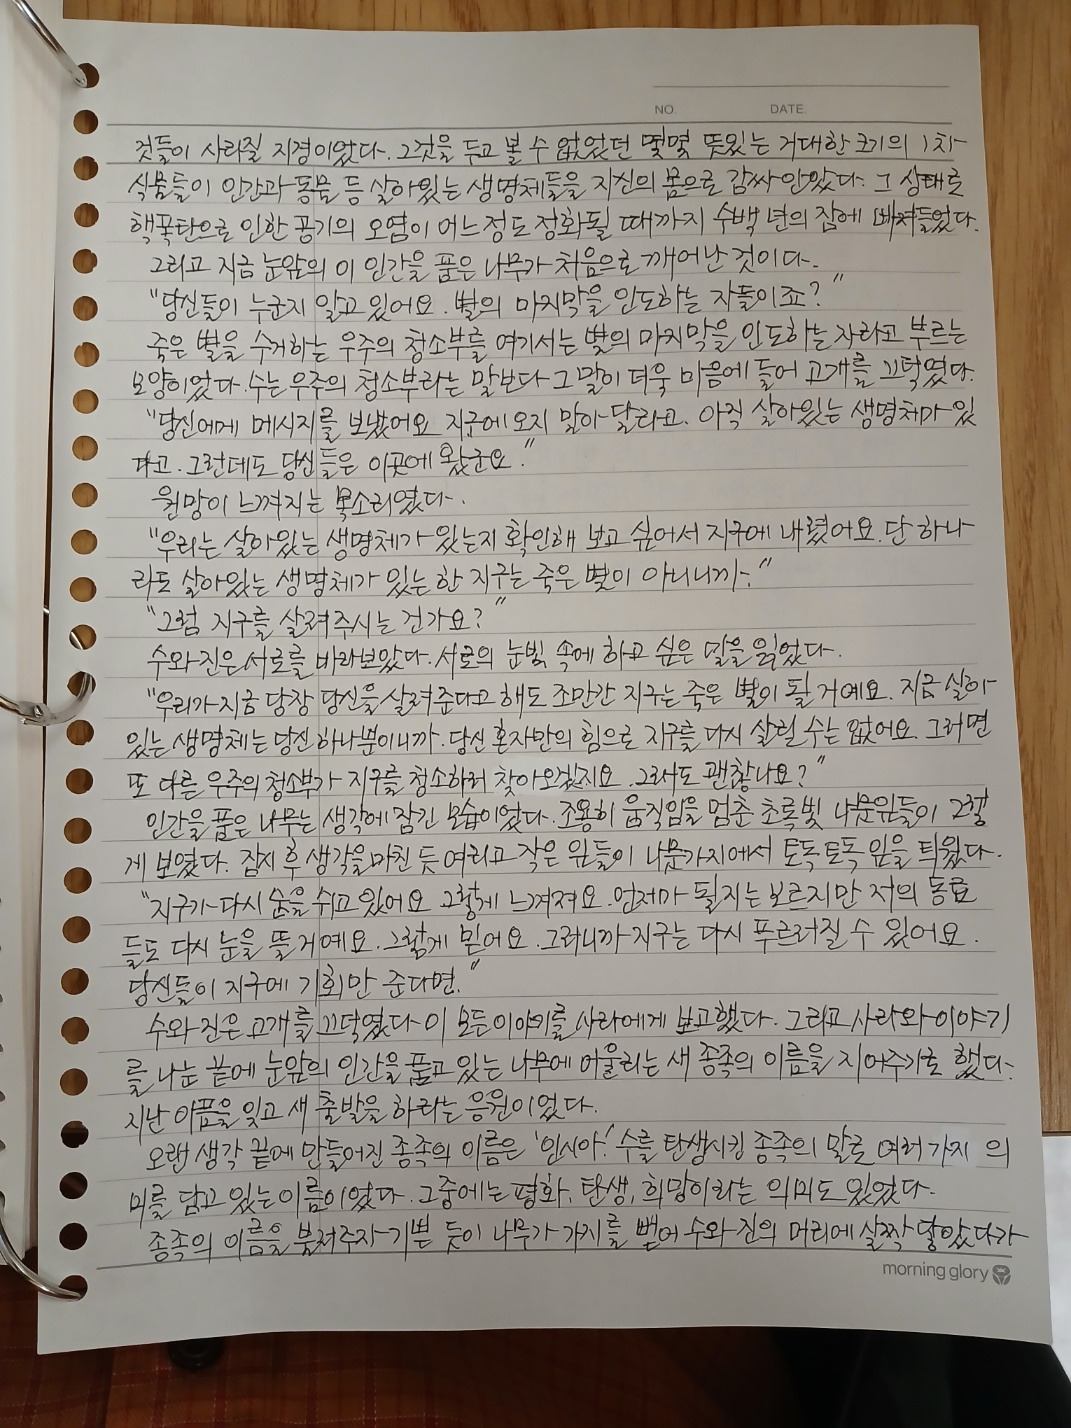 NO. DATE.
것들이 사라질 지경이었다. 그것을 두고 볼 수 없었던 몇몇 뜻있는 거대한 크기의 1차
식물들이 인간과 동물 등 살아있는 생명체들을 자신의 몸으로 감싸 안았다. 그 상태로
핵폭탄으로 인한 공기의 오염이 어느정도 정화될 때까지 수백 년의 잠에 빠져들었다.
그리고 지금 눈앞의 이 인간을 품은 나무가 처음으로 깨어난 것이다.
"당신들이 누군지 알고 있어요. 별의 마지막을 인도하는 자들이죠?"
죽은 별을 수거하는 우주의 청소부를 여기서는 별의 마지막을 인도하는 자라고 부르는
모양이었다. 수는 우주의 청소부라는 말보다 그 말이 더욱 마음에 들어 고개를 끄덕였다.
"당신에게 메시지를 보냈어요. 지구에 오지 말아 달라고. 아직 살아있는 생명체가 있
다고. 그런데도 당신들은 이곳에 왔군요."
원망이 느껴지는 목소리였다.
"우리는 살아있는 생명체가 있는지 확인해 보고 싶어서 지구에 내렸어요. 단 하나
라도 살아있는 생명체가 있는 한 지구는 죽은 별이 아니니까."
"그럼 지구를 살려주시는 건가요?"
수와 진은 서로를 바라보았다. 서로의 눈빛 속에 하고 싶은 말을 읽었다.
"우리가 지금 당장 당신을 살려준다고 해도 조만간 지구는 죽은 별이 될 거예요. 지금 살아
있는 생명체는 당신 하나뿐이니까. 당신 혼자만의 힘으로 지구를 다시 살릴 수는 없어요. 그러면
또 다른 우주의 청소부가 지구를 청소하러 찾아오겠지요. 그래도 괜찮나요?"
인간을 품은 나무는 생각에 잠긴 모습이었다. 조용히 움직임을 멈춘 초록빛 나뭇잎들이 그렇
게 보였다. 잠시 후 생각을 마친 듯 여리고 작은 잎들이 나뭇가지에서 토독토독 잎을 틔웠다.
"지구가 다시 숨을 쉬고 있어요. 그렇게 느껴져요. 언제가 될지는 모르지만 저의 동료
들도 다시 눈을 뜰 거예요. 그렇게 믿어요. 그러니까 지구는 다시 푸르러질 수 있어요.
당신들이 지구에 기회만 준다면."
수와 진은 고개를 끄덕였다. 이 모든 이야기를 사라에게 보고했다. 그리고 사라와 이야기
를 나눈 끝에 눈앞의 인간을 품고 있는 나무에 어울리는 새 종족의 이름을 지어주기로 했다.
지난 아픔을 잊고 새 출발을 하라는 응원이었다.
오랜 생각 끝에 만들어진 종족의 이름은 '인시아.' 수를 탄생시킨 종족의 말로 여러 가지 의
미를 담고 있는 이름이었다. 그중에는 평화, 탄생, 희망이라는 의미도 있었다.
종족의 이름을 붙여주자 기쁜 듯이 나무가 가지를 뻗어 수와 진의 머리에 살짝 닿았다가
morning glory